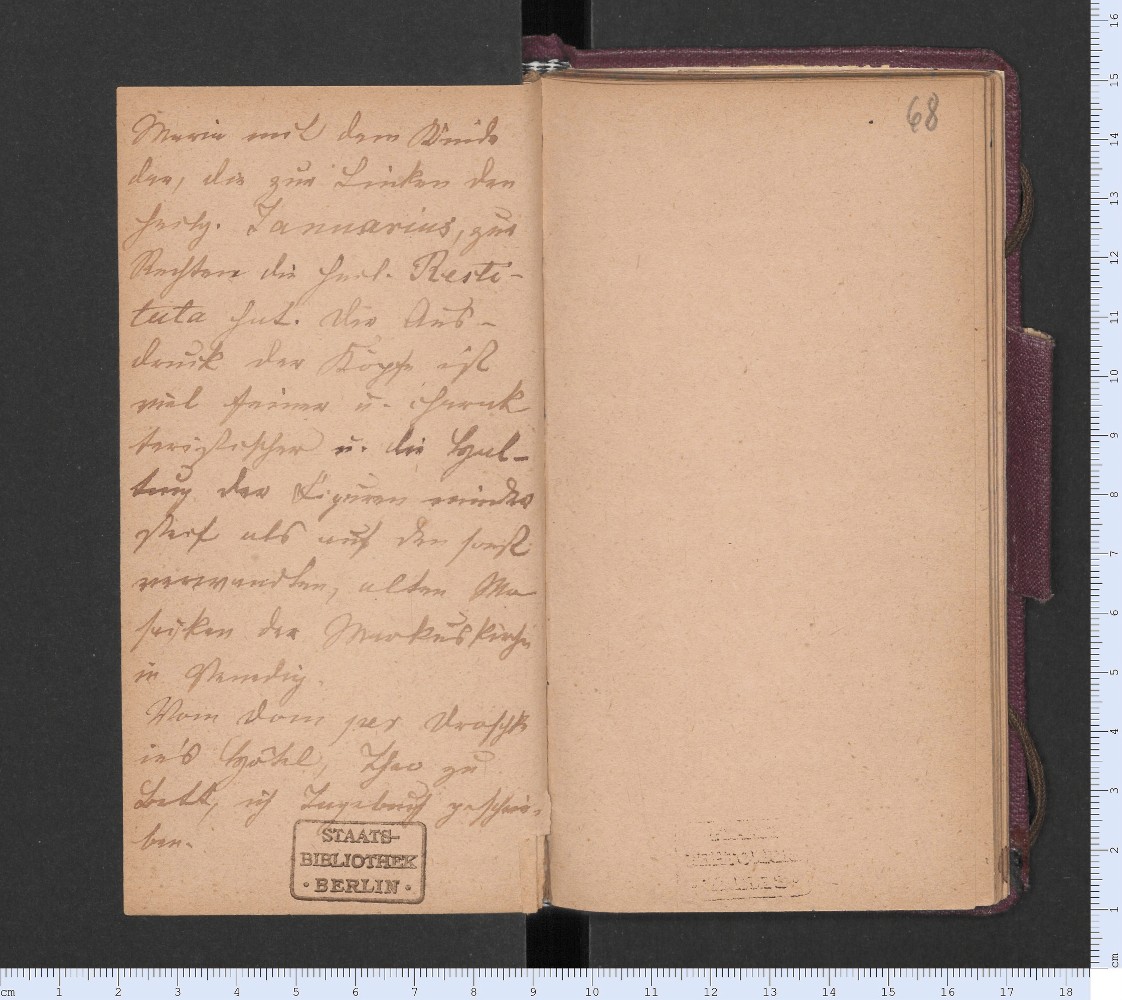 Maria mit dem Kinde
dar, die zur Linken den
heilg. Januarius, zur
Rechten die heil. Resti-
tuta hat. Der Aus-
druck der Köpfe ist
viel feiner u. charak
teristischer u. die Hal-
tung der Figuren minder
steif als auf den sonst
verwandten, alten Mo
saiken der Markuskirche
in Venedig.
Vom Dom per Droschke
in's Hôtel, Theo zu
Bett, ich Tagebuch geschrie-
ben.
STAATS-
BIBLIOTHEK
· BERLIN ·
68